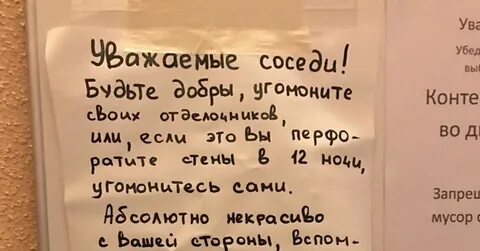 Уважаемые соседи!
Будьте добры, угомоните
своих отделочников,
или, если это вы перфо-
ратите стены в 12 ночи,
угомонитесь сами.
Абсолютно некрасиво
с вашей стороны, вспом-
Ува
Убед
выб
Конте
во д
Запрещ
мусор с